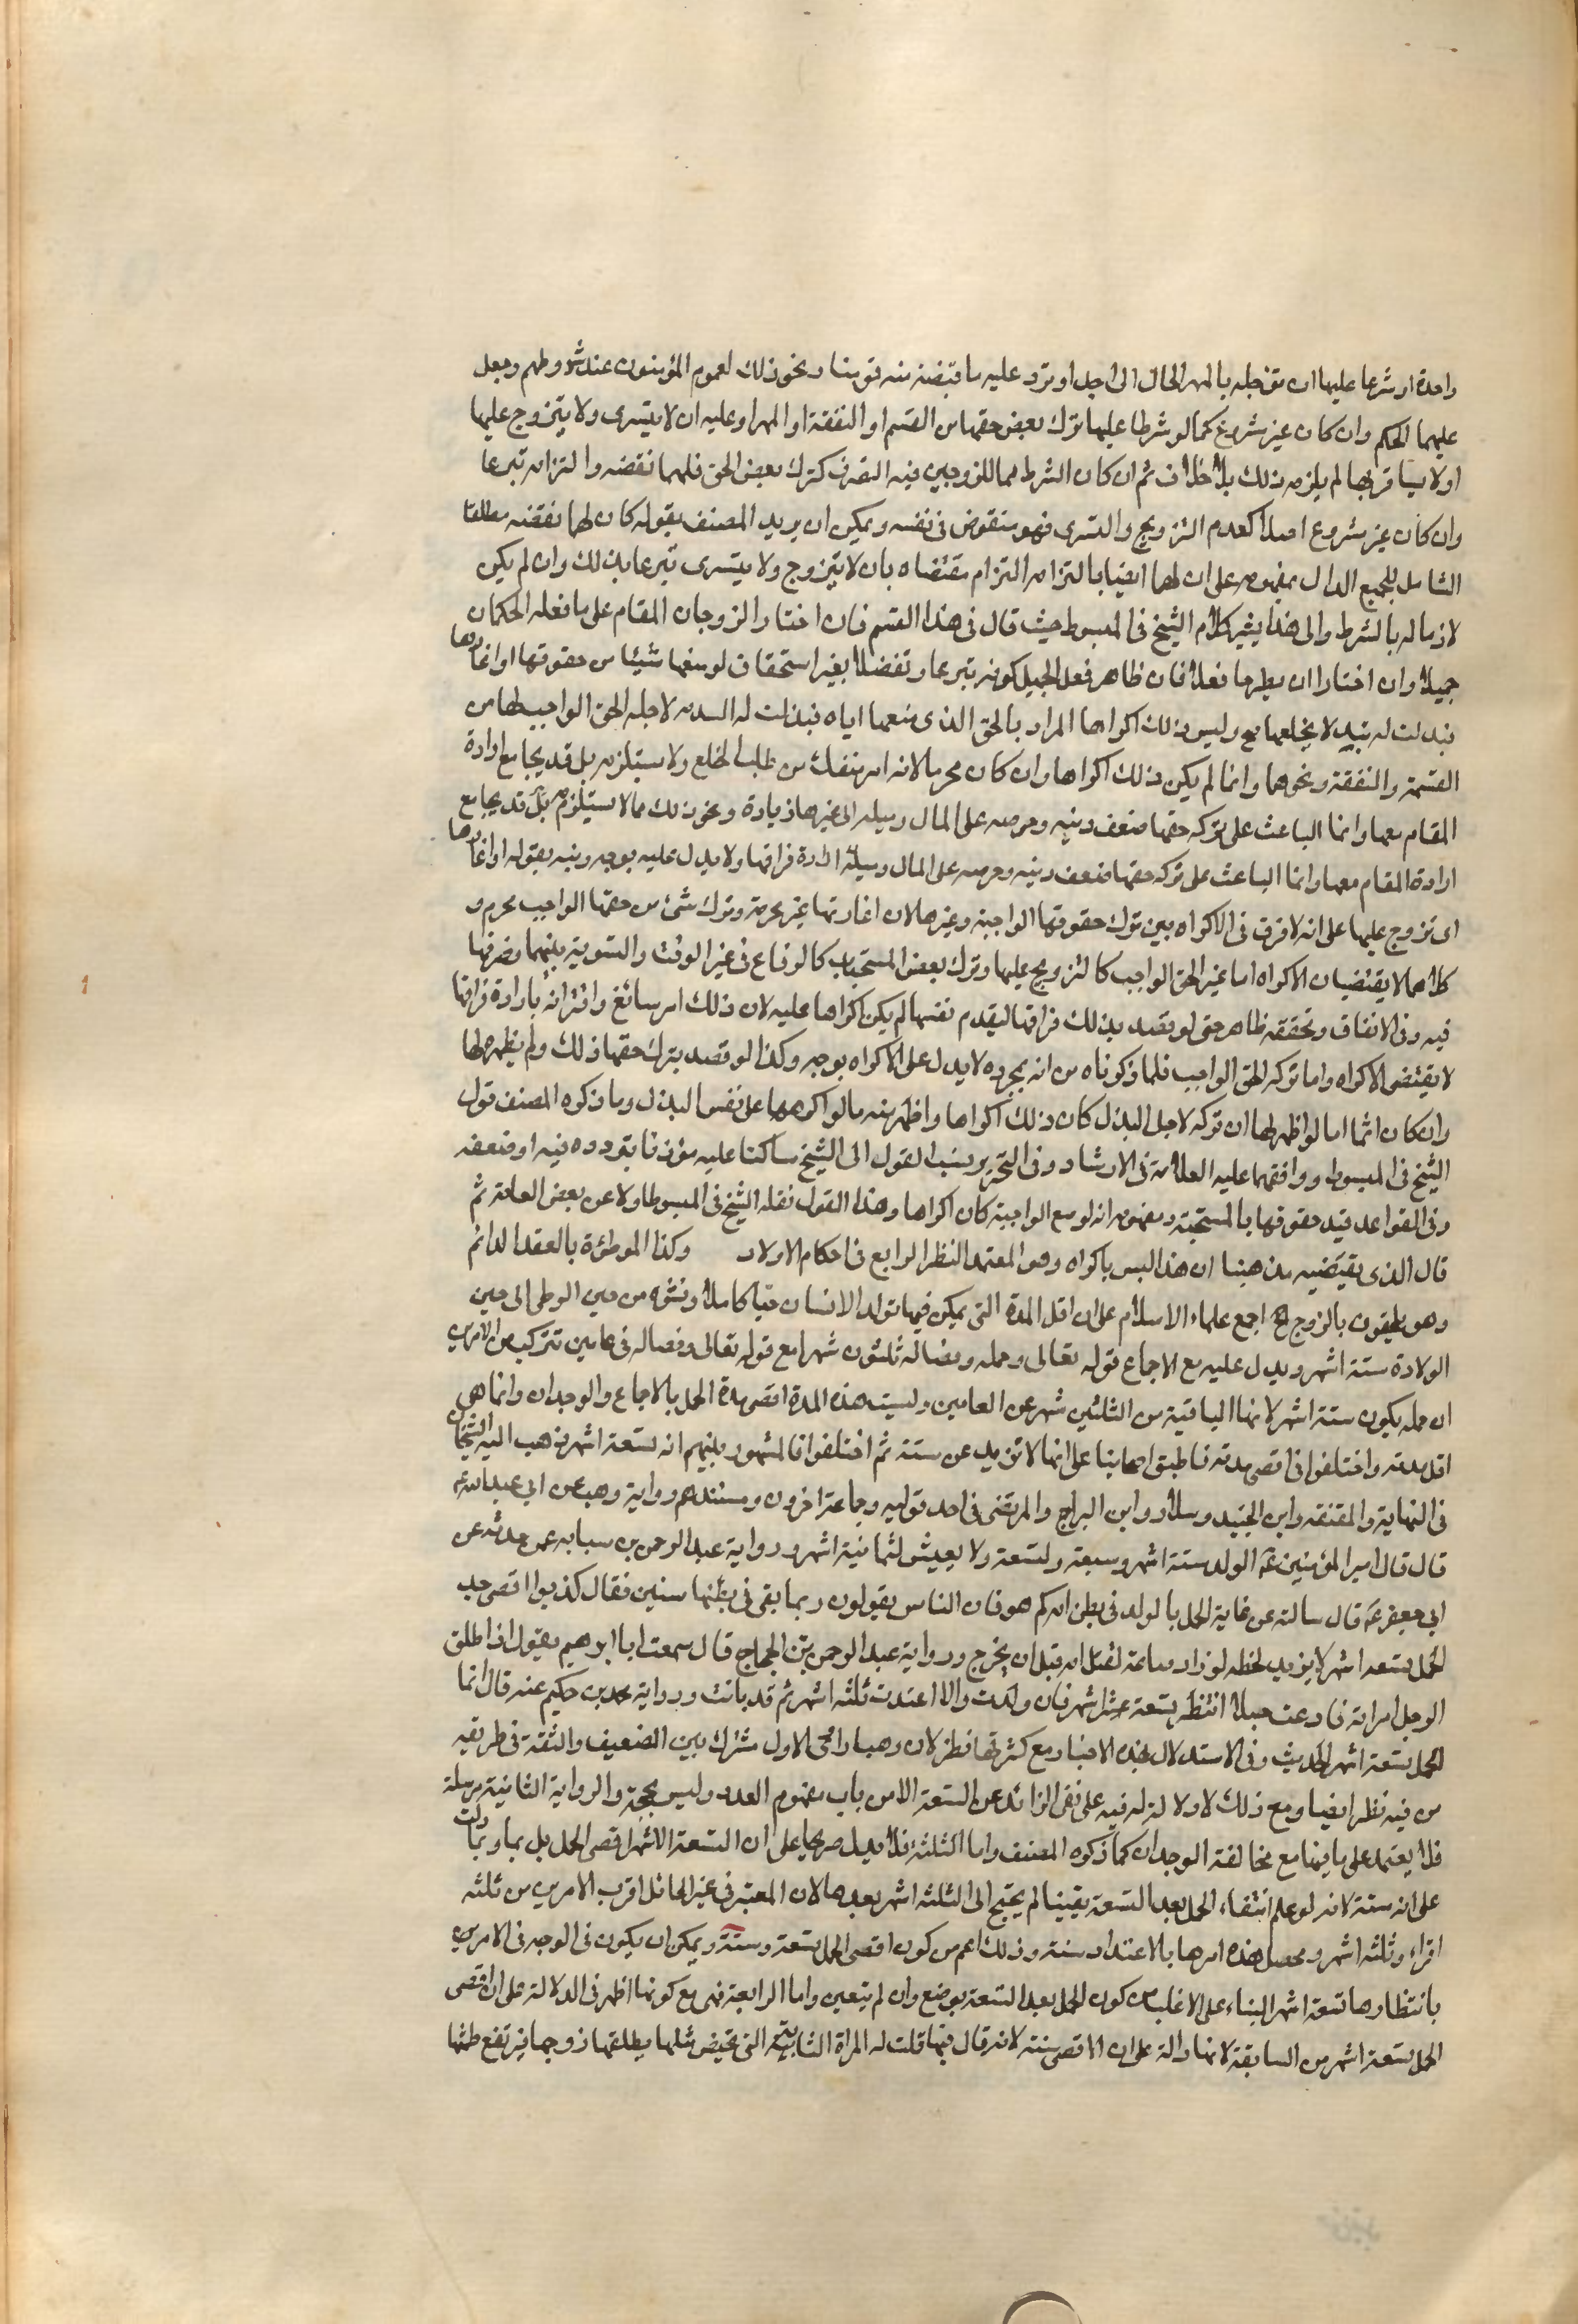 واحدة او شرعا عليها ان تؤجله بالمهر الحال الى اجل او ترد عليه ما قبضته منه قوتا ونحو ذلك لعموم المؤمنون عند شروطهم وجعل
عليهما الحكم وان كان غير مشروع كما لو شرطا عليها ترك بعض حقها من القسم او النفقة او المهر او عليه ان لا يتسرى ولا يتزوج عليها
او لا يسافر بها لم يلزم ذلك بلا خلاف ثم ان كان الشرط مما للزوجين فيه التصرف كترك بعض الحق فلهما نقضه والتزامه تبرعا
وان كان غير مشروع اصلا كعدم التزويج والتسرى فهو منقوض فى نفسه ويمكن ان يريد المصنف بقوله كان لهما نقضه مطلقا
الشامل للجميع الدال بمفهومه على ان لهما ايضا بالتزامه التزام مقتضاه بان لا يتزوج ولا يتسرى تبرعا بذلك وان لم يكن
لازما له بالشرط والى هذا يشير كلام الشيخ فى المبسوط حيث قال فى هذا القسم فان اختار الزوجان المقام على ما فعله الحكمان
جميلا وان اختارا ان يطرحا فعلا فان ظاهر فعل الجميل كونه تبرعا وتفضلا بغير استحقاق لو منعها شيئا من حقوقها او اغارها
فبذلت له بذلا ليخلعها صح وليس ذلك اكراها المراد بالحق الذى منعها اياه فبذلت له البذل لاجله الحق الواجب لها من
القسمة والنفقة ونحوهما وانما لم يكن ذلك اكراها وان كان محرما لانه امر منفك من طلب الخلع ولا يستلزمه بل قد يجامع ارادة
المقام معها وانما الباعث على تركه حقها ضعف دينه وحرصه على المال وميله الى غيرها زيادة ونحو ذلك مما لا يستلزم بل قد يجامع
ارادة المقام معها وانما الباعث على تركه حقها ضعف دينه وحرصه على المال وميله ارادة فراقها ولا يدل عليه بوجه ونبه بقوله او اغارها
اى تزوج عليها على انه لا فرق فى الاكراه بين ترك حقوقها الواجبة وغيرها لان اغارتها غير محرمة وترك شئ من حقها الواجب محرم و
كلاهما لا يقتضيان الاكراه اما غير الحق الواجب كالتزويج عليها وترك بعض المستحبات كالوقاع فى غير الوقت والتسوية بينهما وضرتها
فيه وفى الانفاق وتحققه ظاهر حتى لو قصد بذلك فراقها ليقدم نفسها لم يكن اكراها عليه لان ذلك امر سائغ واقترانه بارادة فراقها
لا يقتضى الاكراه واما تركه الحق الواجب فلما ذكرناه من انه بمجرده لا يدل على الاكراه بوجه وكذا لو قصد بترك حقها ذلك ولم يظهره لها
وان كان اثما اما لو اظهر لها ان تركه لاجل البذل كان ذلك اكراها واظهر منه ما لو اكرهها على نفس البذل وما ذكره المصنف قول
الشيخ فى المبسوط ووافقهما عليه العلامة فى الارشاد وفى التحرير نسب القول الى الشيخ ساكتا عليه مؤذنا بتردده فيه او ضعفه
وفى القواعد قيد حقوقها بالمستحبة ومفهومه انه لو منع الواجبة كان اكراها وهذا القول نقله الشيخ فى المبسوط اولا عن بعض العامة ثم
قال الذى يقتضيه مذهبنا ان هذا ليس باكراه وهو المعتمد النظر الرابع فى احكام الاولاد وكذا الموطئة بالعقد الدائم
وهو يلحقون بالزوج الخ اجمع علماء الاسلام على ان اقل المدة التى يمكن فيها تولد الانسان حيا كاملا ونشوه من حين الوطى الى حين
الولادة ستة اشهر ويدل عليه مع الاجماع قوله تعالى وحمله وفصاله ثلثون شهرا مع قوله تعالى وفصاله فى عامين تتركب من الامرين
ان حمله يكون ستة اشهر لانها الباقية من الثلثين شهر عن العامين وليست هذه المدة اقصى مدة الحمل بالاجماع والوجدان وانما هى
اقل مدته واختلفوا فى اقصى مدته فاطبق اصحابنا على انها لا تزيد عن سنة ثم اختلفوا فالمشهور بينهم انه تسعة اشهر ذهب اليه الشيخان
فى النهاية والمقنعة وابن الجنيد وسلار وابن البراج والمرتضى فى احد قوليه وجماعة اخرون ومستندهم رواية وهب عن ابى عبد الله ع
قال قال امير المؤمنين ع الولد ستة اشهر وسبعة ولتسعة ولا يعيش لثمانية اشهر ورواية عبد الرحمن بن سيابه عمن حدثه عن
ابى جعفر ع قال سالته عن غاية الحمل بالولد فى بطن امه كم هو فان الناس يقولون ربما بقى فى بطنها سنين فقال كذبوا اقصى حد
الحمل تسعة اشهر لا يزيد لحظه لو زاد ساعة لقتل امه قبل ان يخرج ورواية عبد الرحمن بن الحجاج قال سمعت ابا ابرهيم يقول اذا طلق
الرجل امراته فادعت حبلا انتظر تسعة اشهر فان ولدت والا اعتدت ثلثه اشهر ثم قد بانت ورواية محمد بن حكيم عنه قال انما
الحمل تسعة اشهر الحديث وفى الاستدلال بهذه الاخبار مع كثرتها نظر لان وهبا راوى الاول مشترك بين الضعيف والثقة فى طريقه
من فيه نظر ايضا ومع ذلك لا دلالة له فيه على نفى الزائد عن التسعة الا من باب مفهوم العدد وليس بحجة والرواية الثانية مرسلة
فلا يعتمد على ما فيها مع مخالفة الوجدان كما ذكره المصنف واما الثلثة فلا تدل صريحا على ان التسعة الاشهر اقصى الحمل بل ربما دلت
على انه سنة لانه لو علم انتفاء الحمل بعد التسعة يقينا لم يحتج الى الثلثه اشهر بعدها لان المعتبر فى غير الحائل اقرب الامرين من ثلثه
اقراء وثلثه اشهر ومحصل هذه امرها بالاعتداد سنة وذلك اعم من كون اقصى الحمل تسعة وسنة ويمكن ان يكون فى الوجه فى الامر
بانتظارها تسعة اشهر البناء على الاغلب من كون الحمل بعد التسعة يوضع وان لم يتعين واما الرابعة فهى مع كونها اظهر فى الدلالة على ان اقصى
الحمل تسعة اشهر من السابقة لانها دالة على ان الاقصى سنة لانه قال فيها قلت له المراة الشابة التى تحيض مثلها يطلقها زوجها فيرتفع طمثها